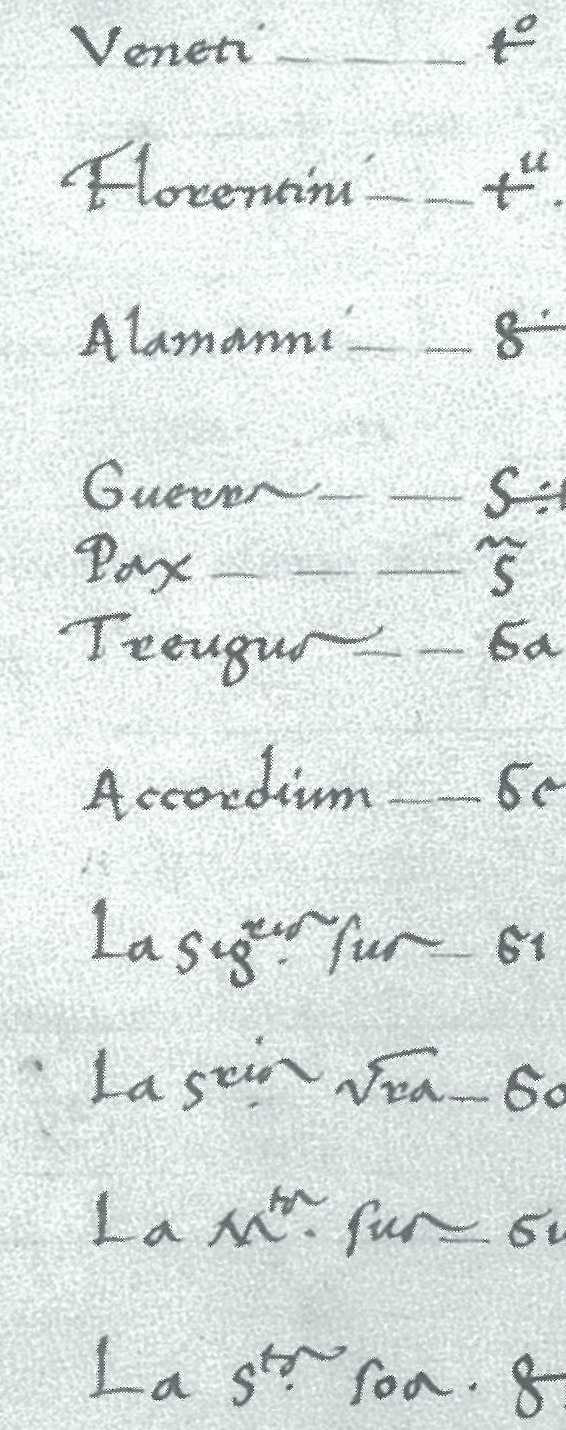 Veneti — — — tº
Florentini — — tu.
Alamanni — — 8
Guerra — — S
Pax — — — s̃
Treugua — — 6a
Accordium — — 6c
La sigria. sua — 61
La sria. vra — 6o
La Mta. sua — 6u
La sta. soa. 8